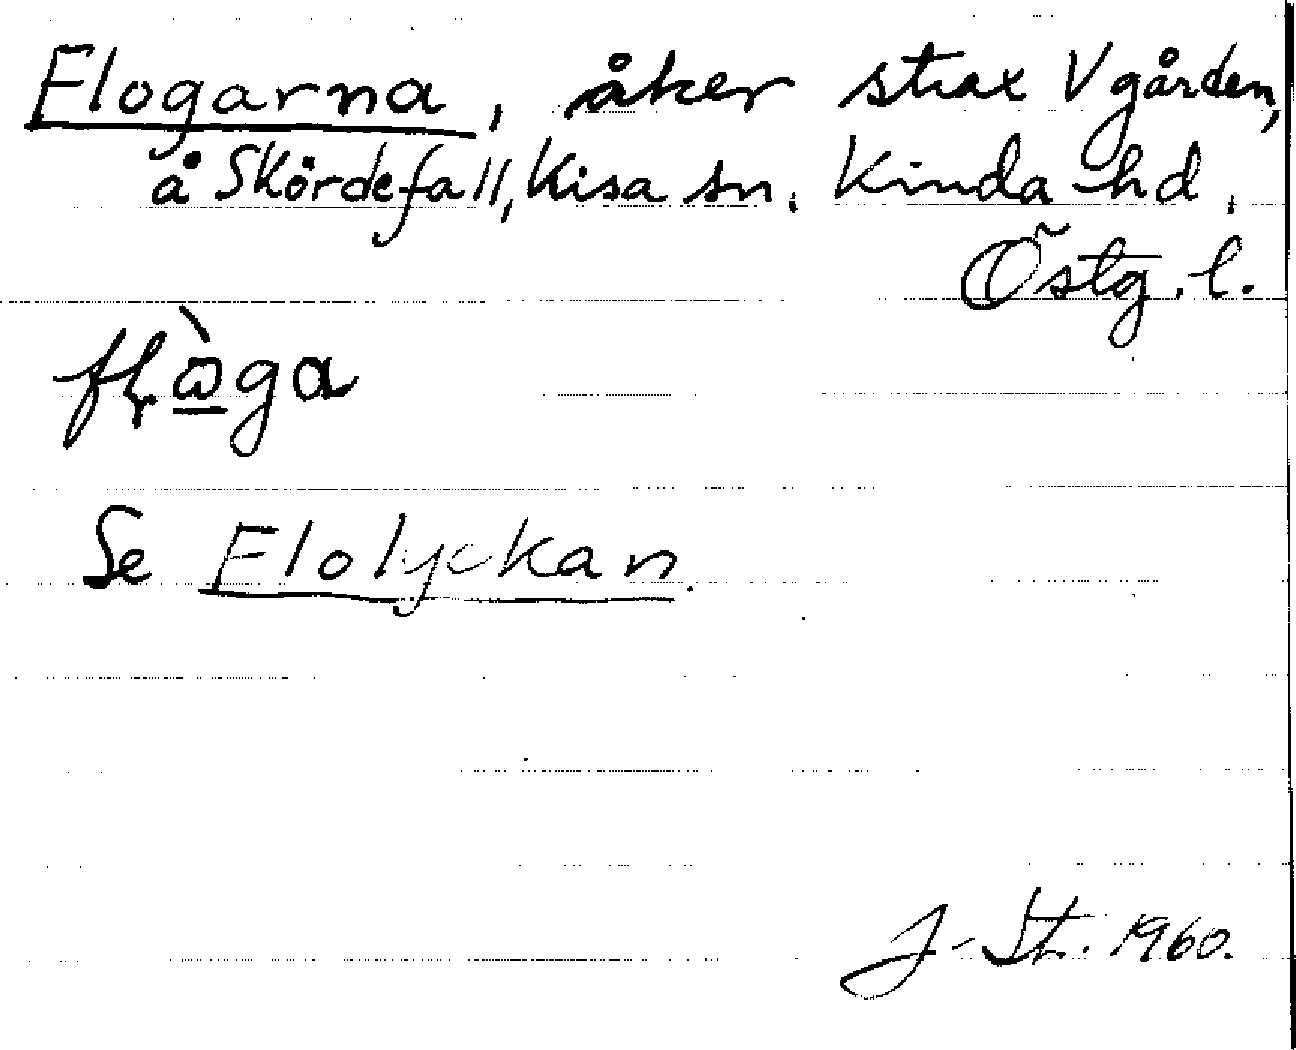 Flogarna, åker strax V gården,
å Skördefall, Kisa sn. Kinda hd.
Östg. l.
Se Flolyckan.
J. St. 1960.